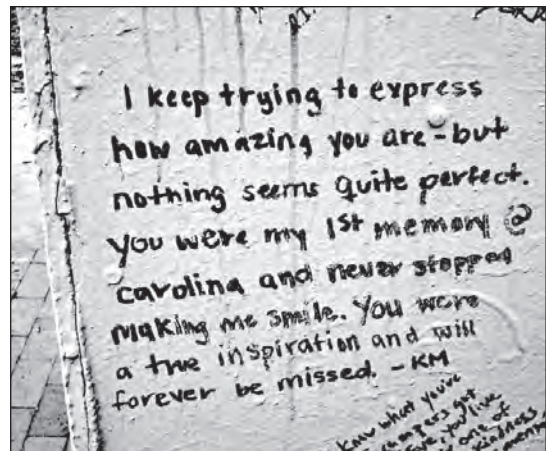 I keep trying to express
how amazing you are - but
nothing seems quite perfect.
You were my 1st memory @
carolina and never stopped
making me smile. You were
a true inspiration and will
forever be missed. - KM
know what you've
campers got
you live
one of
kindness